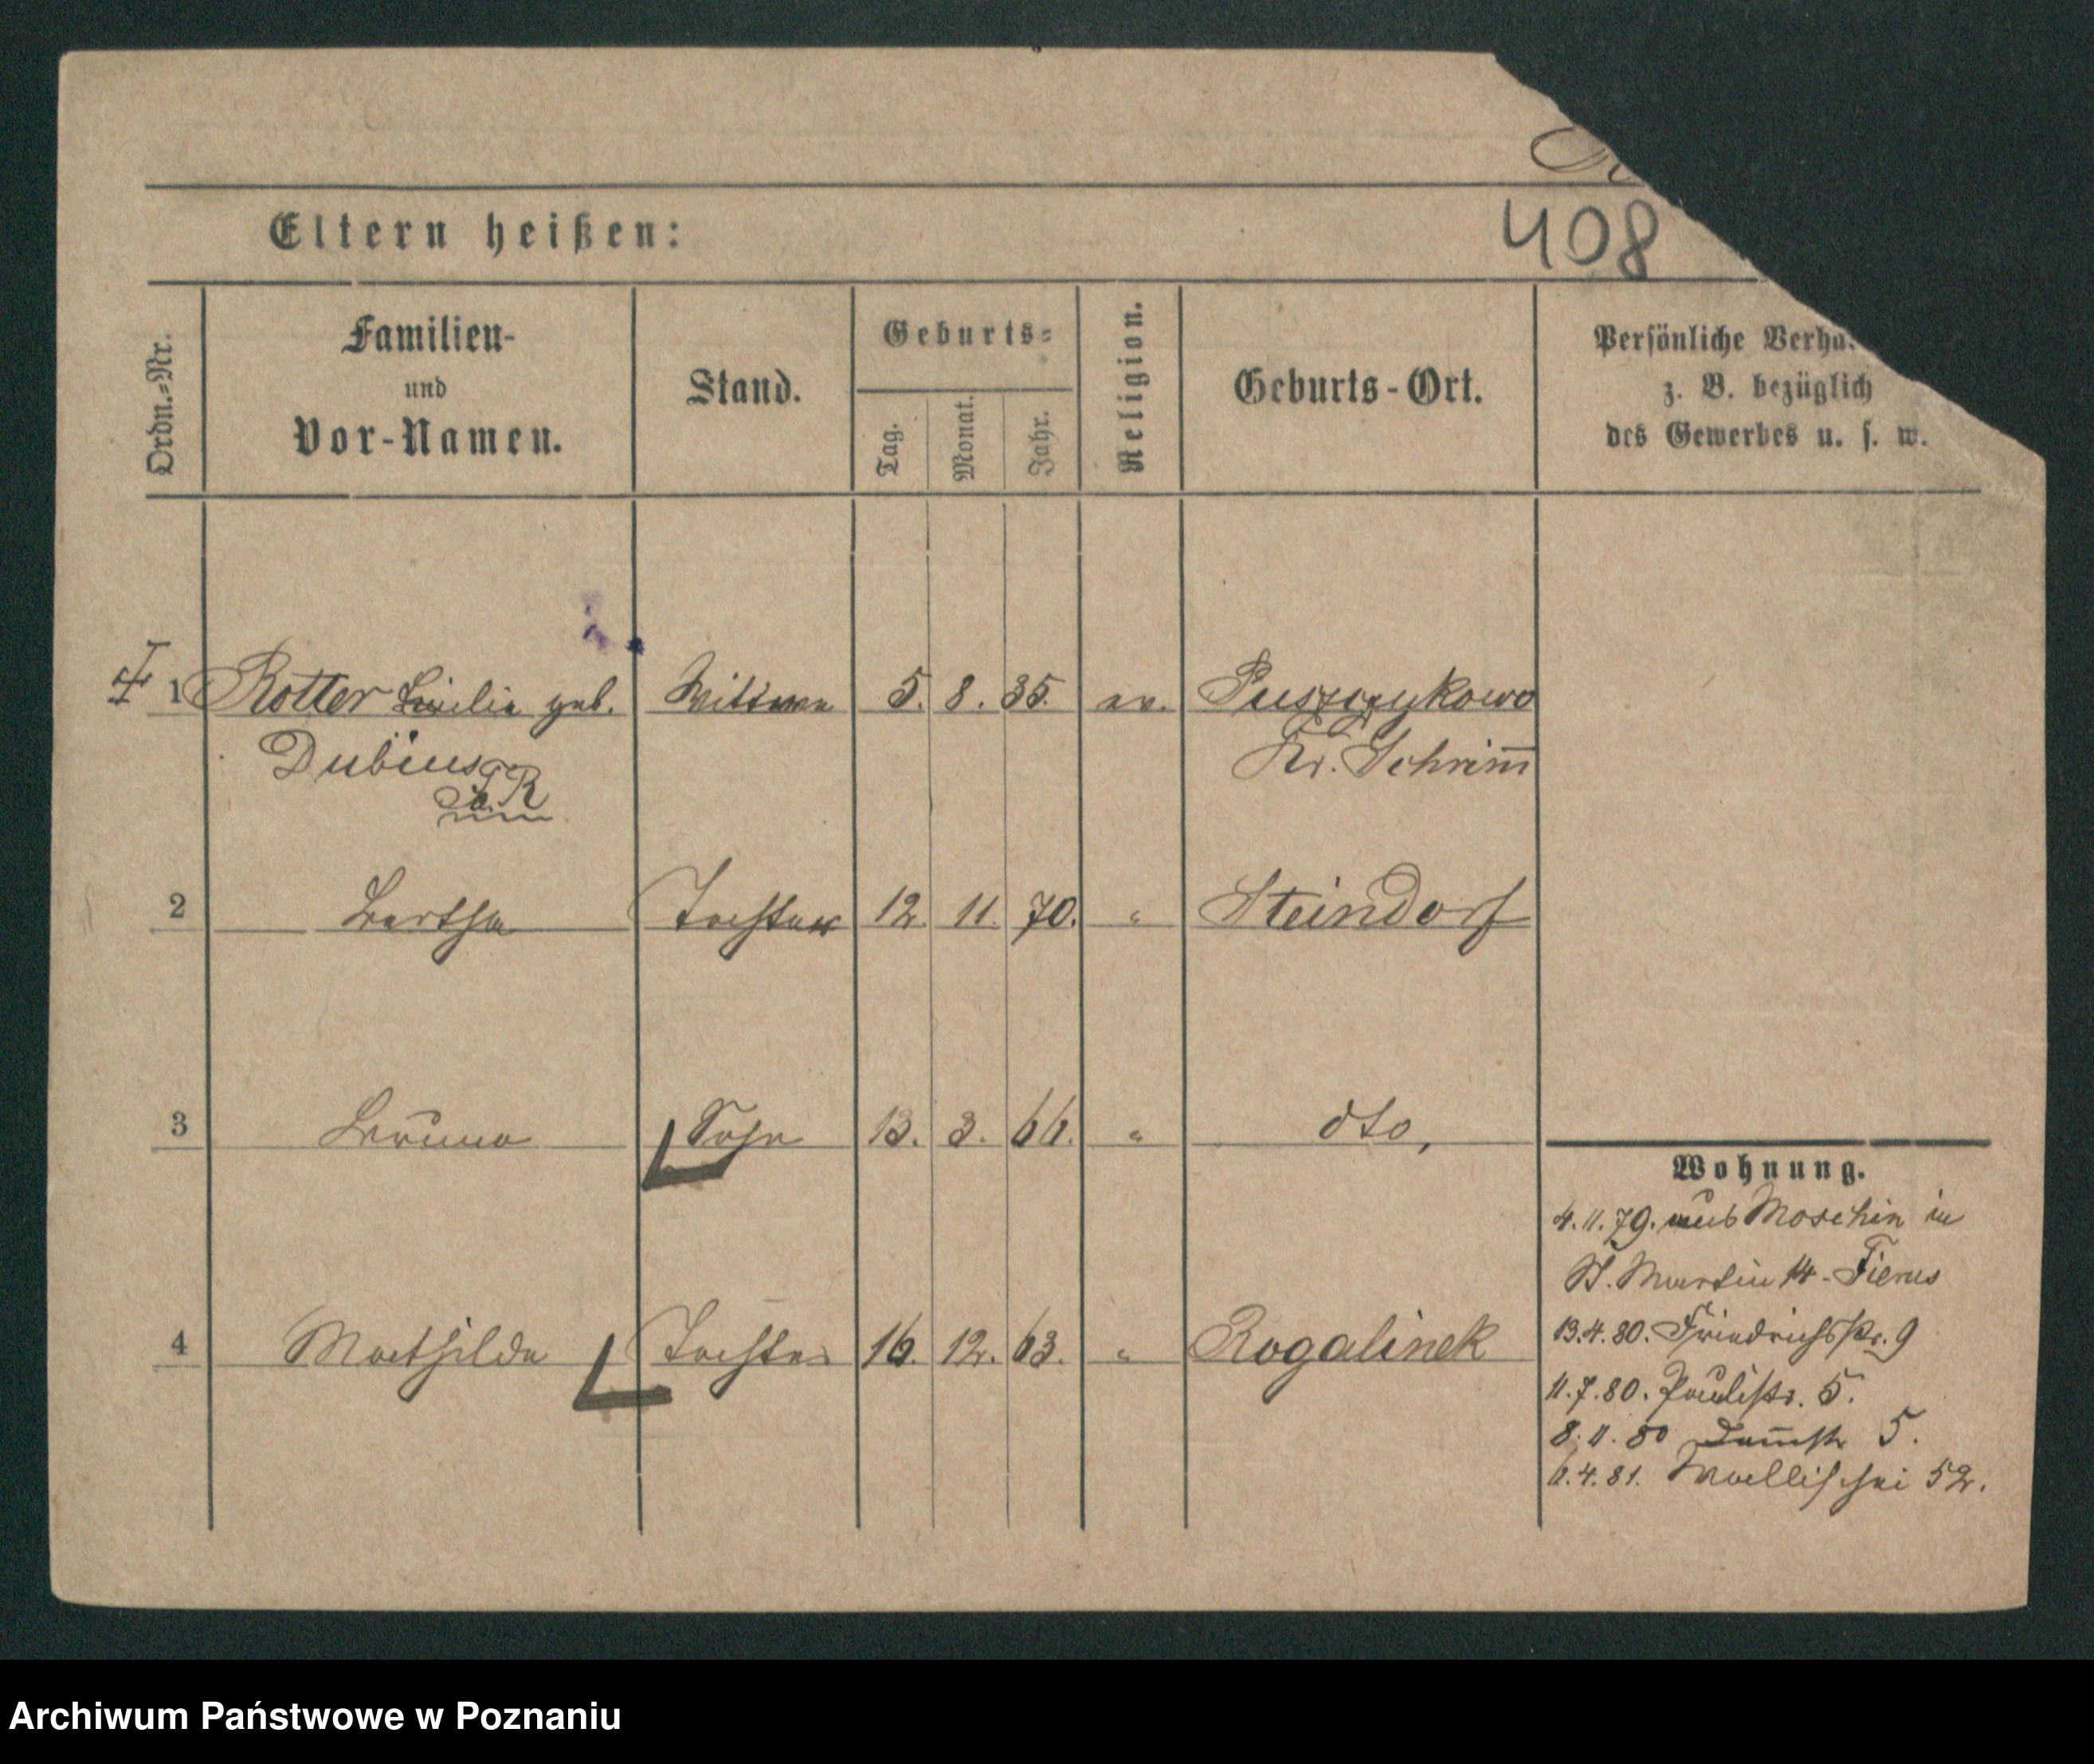 408
Eltern heißen:
Ordn.-Nr.
Familien-
und
Vor-Namen.
Stand.
Geburts-
Tag.
Monat.
Jahr.
Religion.
Geburts-Ort.
Persönliche Verhä
z. B. bezüglich
des Gewerbes u. s. w.
1 Rotter geb. Wittwe 5. 8. 35. ev. Puszczykowo
Dubius Kr. Schrim̅
2 Bertha Tochter 12. 11. 70. " Steindorf
3 Bruno Sohn 13. 3. 66. " dto,
4 Mathilde Tochter 16. 12. 63. " Rogalinek
Wohnung.
4.11.79. aus Moschin in
St. Martin 14 - Fierus
13.4.80. Friedrichsstr. 9
11.7.80. Paulistr. 5.
8.11.80 Dam̅str 5.
6.4.81. Wallischei 52.
Archiwum Państwowe w Poznaniu